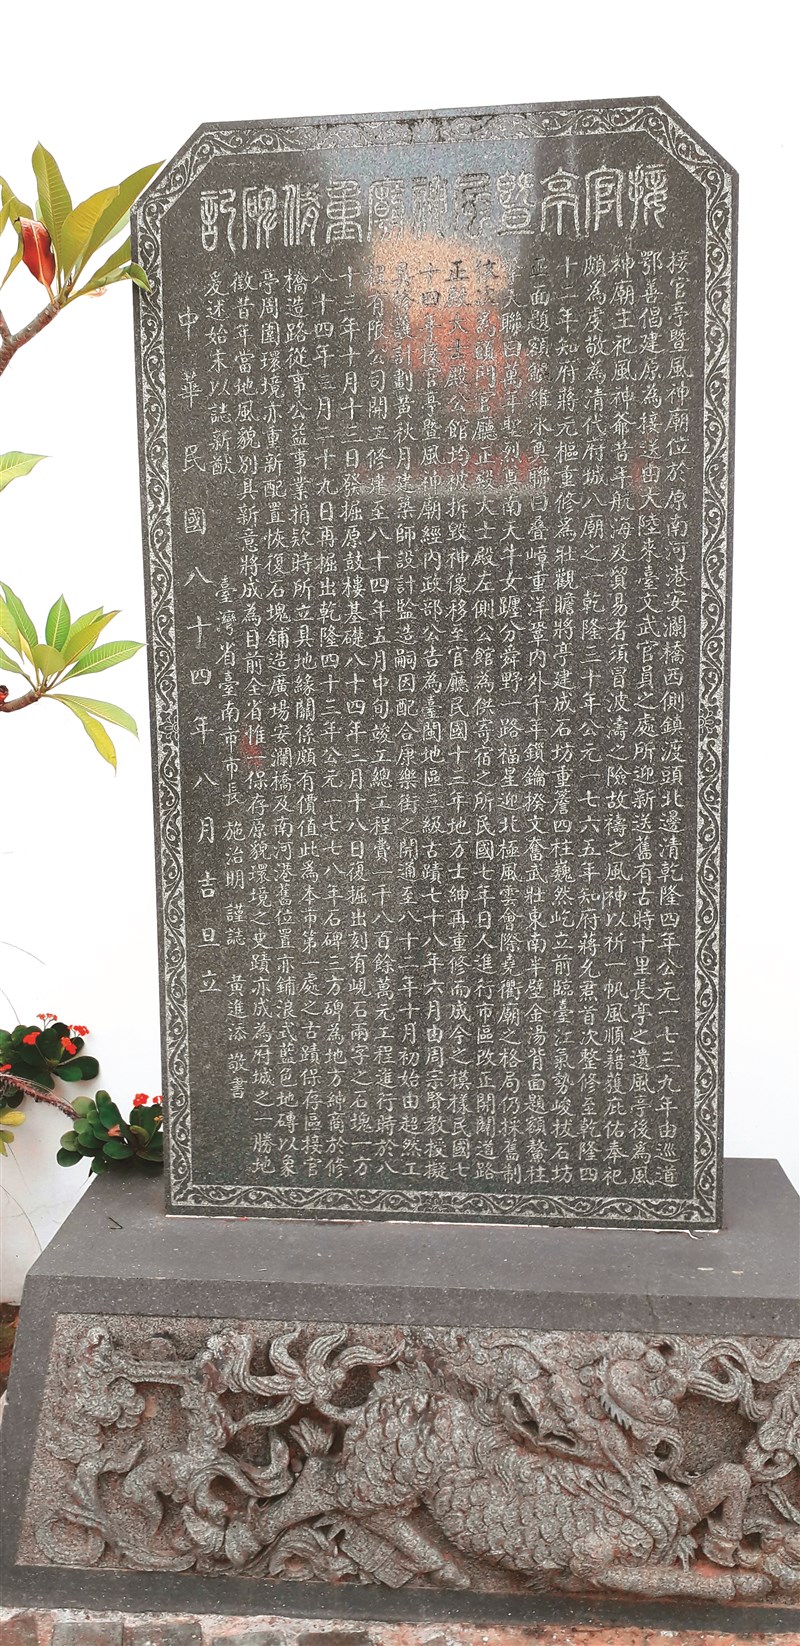 接官亭暨風神廟重修碑記
接官亭暨風神廟位於原南河港安瀾橋西側鎮渡頭北邊清乾隆四年公元一七三九年由巡道
鄂善倡建原為接送由大陸來臺文武官員之處所迎新送舊有古時十里長亭之遺風亭後為風
神廟主祀風神爺昔年航海及貿易者須冒波濤之險故禱之風神以祈一帆風順藉獲庇佑奉祀
頗為虔敬為清代府城八廟之一乾隆三十年公元一七六五年知府蔣允焄首次整修至乾隆四
十二年知府蔣元樞重修為壯觀瞻將亭建成石坊重簷四柱巍然屹立前臨臺江氣勢峻拔石坊
正面題額鯤維永奠聯曰疊嶂重洋鞏內外千年鎖鑰揆文奮武壯東南半壁金湯背面題額鰲柱
擎天聯曰萬年聖烈奠南天牛女躔分舜野一路福星迎北極風雲會際堯衢廟之格局仍採舊制
修護為鎮門官廳正殿大士殿左側公館為供寄宿之所民國七年日人進行市區改正開闢道路
正殿大士殿公館均被拆毀神像移至官廳民國十三年地方士紳再重修而成今之模樣民國七
十四年接官亭暨風神廟經內政部公告為臺閩地區三級古蹟七十八年六月由周宗賢教授擬
具修護計劃黃秋月建築師設計監造嗣因配合康樂街之開通至八十二年十月初始由超然工
程有限公司開工修建至八十四年五月中旬竣工總工程費一千八百餘萬元工程進行時於八
十三年十月十三日發掘原鼓樓基礎八十四年三月十八日復掘出刻有峴石兩字之石塊一方
八十四年三月二十九日再掘出乾隆四十三年公元一七七八年石碑三方碑為地方紳商於修
橋造路從事公益事業捐款時所立具地緣關係頗有價值此為本市第一處之古蹟保存區接官
亭周圍環境亦重新配置恢復石塊鋪造廣場安瀾橋及南河港舊位置亦鋪浪式藍色地磚以象
徵昔年當地風貌別具新意將成為目前全省惟一保存原貌環境之史蹟亦成為府城之一勝地
爰述始末以誌新猷
臺灣省臺南市市長 施治明 謹誌 黃進添 敬書
中華民國八十四年八月吉旦立